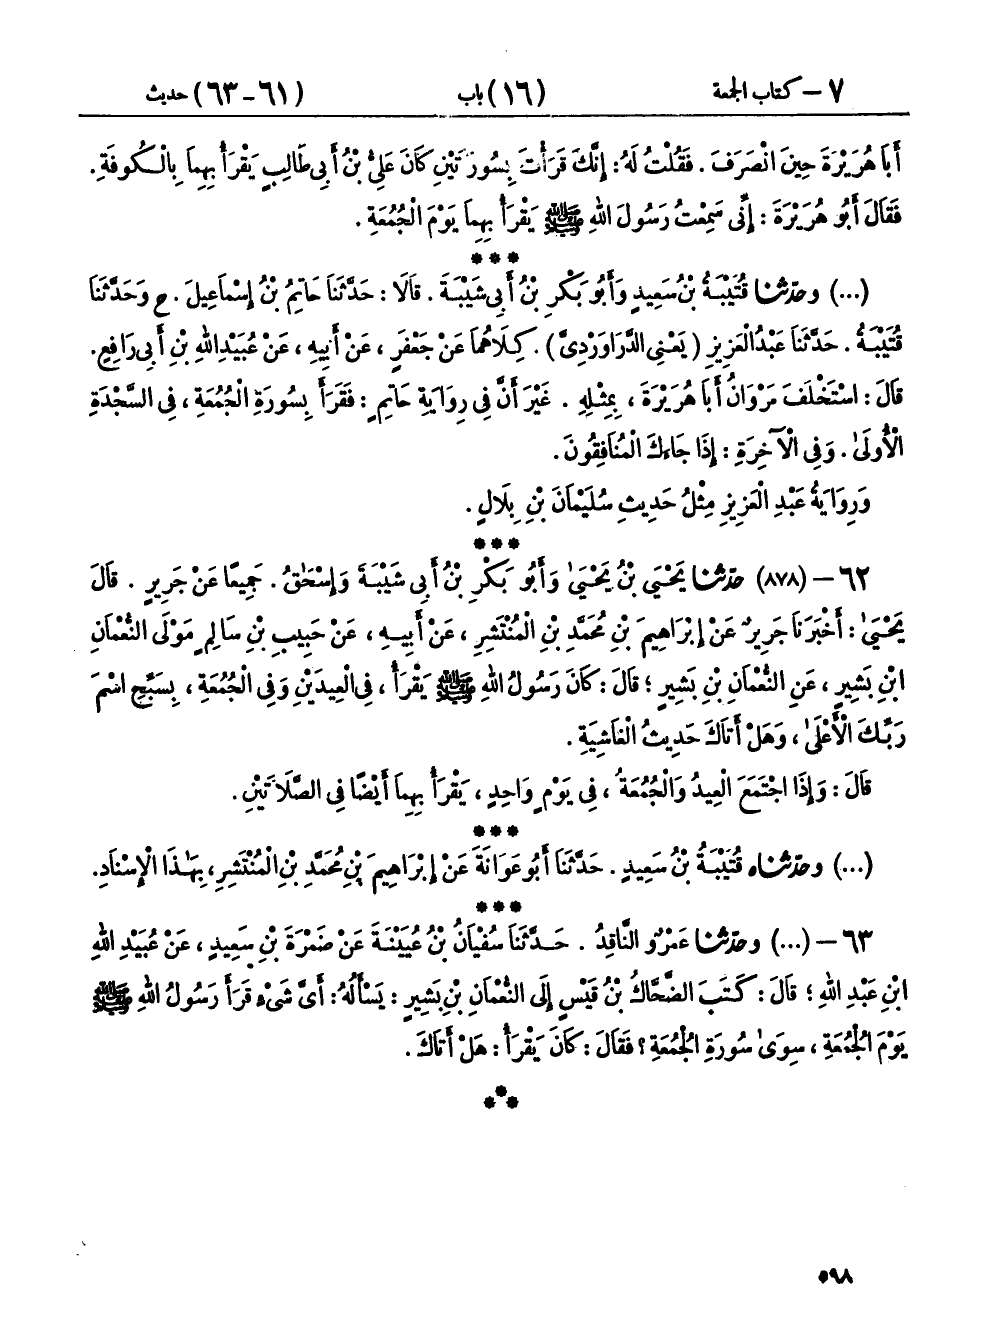 ٧ – كتاب الجمعة (١٦) باب (٦١ – ٦٣) حديث
أَبَا هُرَيْرَةَ حِينَ انْصَرَفَ . فَقُلْتُ لَهُ : إِنَّكَ قَرَأْتَ بِسُورَتَيْنِ كَانَ عَلِيُّ بْنُ أَبِي طَالِبٍ يَقْرَأُ بِهِمَا بِالْكُوفَةِ .
فَقَالَ أَبُو هُرَيْرَةَ : إِنِّي سَمِعْتُ رَسُولَ اللهِ ﷺ يَقْرَأُ بِهِمَا يَوْمَ الْجُمُعَةِ .
***
(...) وحدّثنا قُتَيْبَةُ بْنُ سَعِيدٍ وَأَبُو بَكْرِ بْنُ أَبِي شَيْبَةَ . قَالَا : حَدَّثَنَا حَاتِمُ بْنُ إِسْمَاعِيلَ . ح وَحَدَّثَنَا
قُتَيْبَةُ . حَدَّثَنَا عَبْدُ الْعَزِيزِ ( يَعْنِي الدَّرَاوَرْدِىَّ ) . كِلَاهُمَا عَنْ جَعْفَرٍ ، عَنْ أَبِيهِ ، عَنْ عُبَيْدِ اللهِ بْنِ أَبِي رَافِعٍ .
قَالَ : اسْتَخْلَفَ مَرْوَانُ أَبَا هُرَيْرَةَ ، بِمِثْلِهِ . غَيْرَ أَنَّ فِي رِوَايَةِ حَاتِمٍ : فَقَرَأَ بِسُورَةِ الْجُمُعَةِ ، فِي السَّجْدَةِ
الْأُولَىٰ . وَفِي الْآخِرَةِ : إِذَا جَاءَكَ الْمُنَافِقُونَ .
وَرِوَايَةُ عَبْدِ الْعَزِيزِ مِثْلُ حَدِيثِ سُلَيْمَانَ بْنِ بِلَالٍ .
***
٦٢ – (٨٧٨) حدّثنا يَحْيَىٰ بْنُ يَحْيَىٰ وَأَبُو بَكْرِ بْنُ أَبِي شَيْبَةَ وَإِسْحَٰقُ . جَمِيعًا عَنْ جَرِيرٍ . قَالَ
يَحْيَىٰ : أَخْبَرَنَا جَرِيرٌ عَنْ إِبْرَاهِيمَ بْنِ مُحَمَّدِ بْنِ الْمُنْتَشِرِ ، عَنْ أَبِيهِ ، عَنْ حَبِيبِ بْنِ سَالِمٍ مَوْلَى النُّعْمَانِ
ابْنِ بَشِيرٍ ، عَنِ النُّعْمَانِ بْنِ بَشِيرٍ ؛ قَالَ : كَانَ رَسُولُ اللهِ ﷺ يَقْرَأُ ، فِي الْعِيدَيْنِ وَفِي الْجُمُعَةِ ، بِسَبِّحِ اسْمَ
رَبِّكَ الْأَعْلَىٰ ، وَهَلْ أَتَاكَ حَدِيثُ الْغَاشِيَةِ .
قَالَ : وَإِذَا اجْتَمَعَ الْعِيدُ وَالْجُمُعَةُ ، فِي يَوْمٍ وَاحِدٍ ، يَقْرَأُ بِهِمَا أَيْضًا فِي الصَّلَاتَيْنِ .
***
(...) وحدّثناه قُتَيْبَةُ بْنُ سَعِيدٍ . حَدَّثَنَا أَبُو عَوَانَةَ عَنْ إِبْرَاهِيمَ بْنِ مُحَمَّدِ بْنِ الْمُنْتَشِرِ ، بِهَٰذَا الْإِسْنَادِ .
***
٦٣ – (...) وحدّثنا عَمْرٌو النَّاقِدُ . حَدَّثَنَا سُفْيَانُ بْنُ عُيَيْنَةَ عَنْ ضَمْرَةَ بْنِ سَعِيدٍ ، عَنْ عُبَيْدِ اللهِ
ابْنِ عَبْدِ اللهِ ؛ قَالَ : كَتَبَ الضَّحَّاكُ بْنُ قَيْسٍ إِلَى النُّعْمَانِ بْنِ بَشِيرٍ : يَسْأَلُهُ : أَىَّ شَىْءٍ قَرَأَ رَسُولُ اللهِ ﷺ
يَوْمَ الْجُمُعَةِ ، سِوَىٰ سُورَةِ الْجُمُعَةِ ؟ فَقَالَ : كَانَ يَقْرَأُ : هَلْ أَتَاكَ .
***
٥٩٨